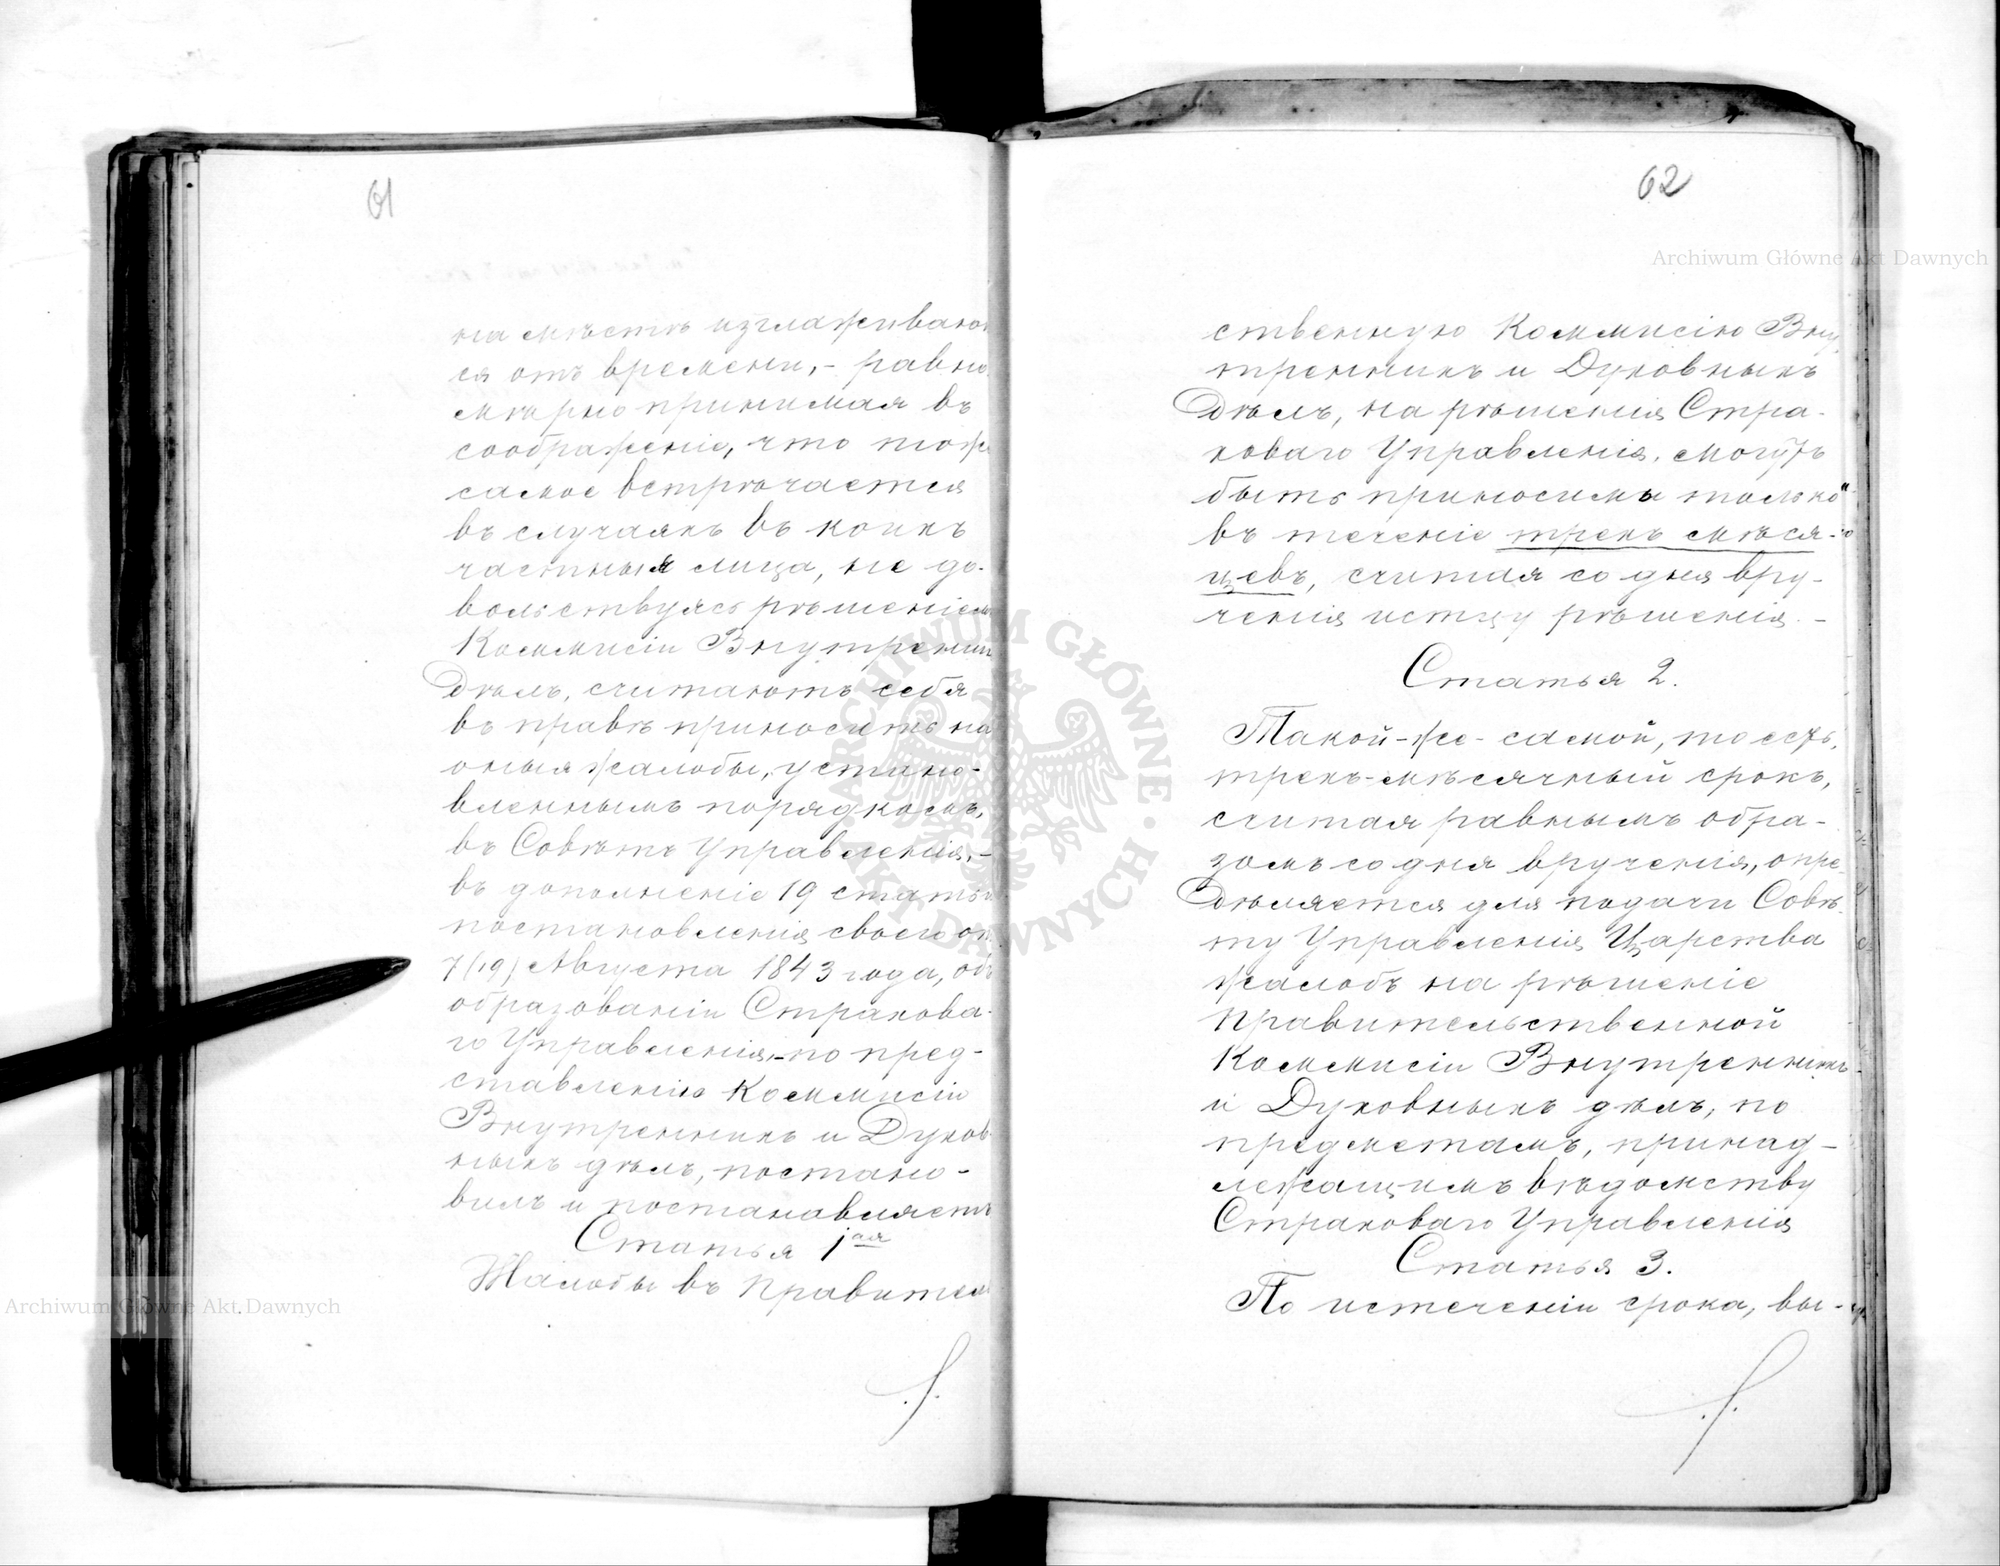 61
на мѣстѣ изглаживаю
ся отъ времени,- равно
мѣрно принимая въ
сообра женіе, что тоже
самое встрѣчается
въ случаяхъ въ коихъ
частныя лица, не до-
вольствуясь рѣшеніемъ
Коммисіи Внутренних
Дѣлъ, считаютъ себя
въ правѣ приносить на
оныя жалобы, устано-
вленнымъ порядкомъ,
въ Совѣтъ Управленія,-
въ дополненіе 19 статьи
постановленія своего от
7/19/ Августа 1843 года, объ
образованіи Страхова-
го Управленія,-по пред-
ставленію Коммисіи
Внутреннихъ и Духов
ныхъ дѣлъ, постано-
вилъ и постановляетъ
Статья 1ая
Жалобы въ Правител
62
ственную Коммисію Вну
треннихъ и Духовныхъ
Дѣлъ, на рѣшенія Стра-
ховаго Управленія, могутъ
быть приносимы только
въ теченіе трехъ мѣся-
цевъ, считая со дня вру-
ченія истцу рѣшенія.-
Статья 2.
Такой-же-самой, то есть,
трехъ-мѣсячный срокъ,
считая равнымъ обра-
зомъ со дня врученія, опре-
дѣляется для подачи Совѣ-
ту Управленія Царства
жалобъ на рѣшеніе
Правительственной
Коммисіи Внутреннихъ
и Духовныхъ дѣлъ, по
предметамъ, принад-
лежащимъ вѣдомству
Страховаго Управленія
Статья 3.
По истеченіи срока, вы-
Archiwum Główne Akt Dawnych
Archiwum Główne Akt Dawnych
ARCHIWUM GŁÓWNE AKT DAWNYCH